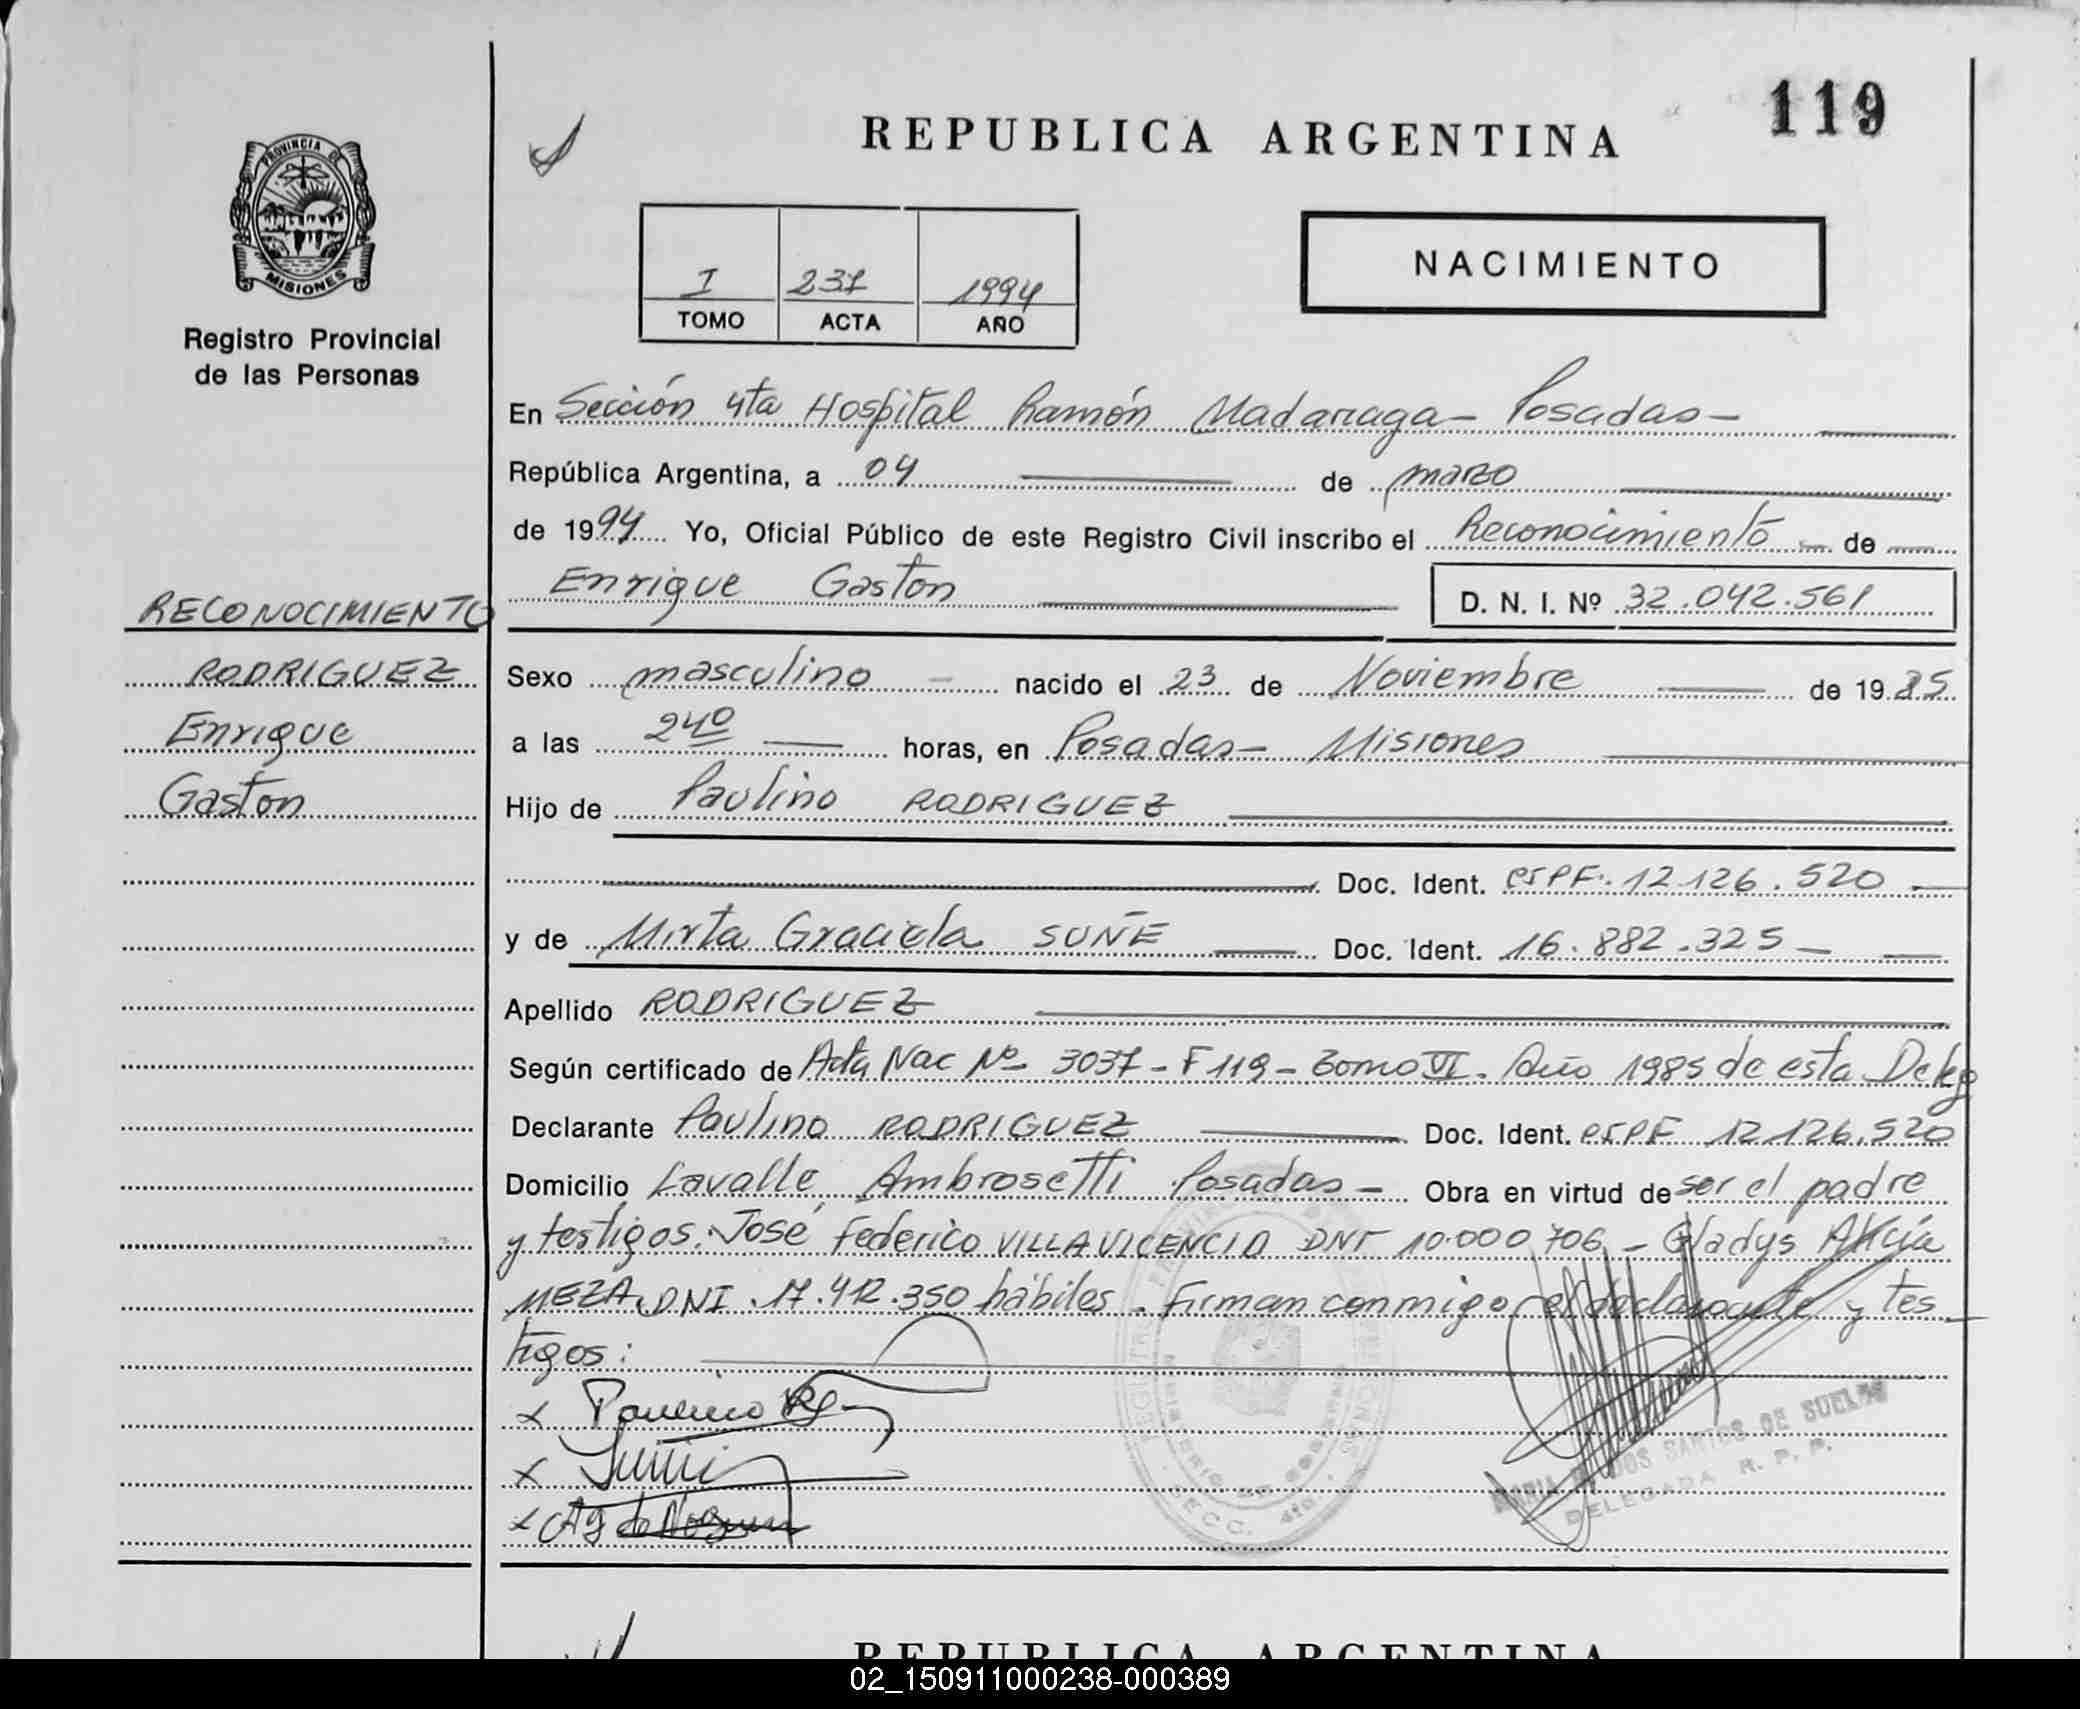 119
REPUBLICA ARGENTINA
PROVINCIA DE
MISIONES
Registro Provincial
de las Personas
NACIMIENTO
I 237 1994
TOMO ACTA AÑO
En Sección 4ta Hospital Ramón Madariaga - Posadas -
República Argentina, a 04 de marzo
de 1994 Yo, Oficial Público de este Registro Civil inscribo el Reconocimiento de
Enrique Gaston D. N. I. Nº 32.042.561
RECONOCIMIENTO
RODRIGUEZ
Enrique
Gaston
Sexo masculino nacido el 23 de Noviembre de 1985
a las 24º horas, en Posadas - Misiones
Hijo de Paulino RODRIGUEZ
Doc. Ident. CIPF. 12.126.520
y de Mirta Graciela SUÑE Doc. Ident. 16.882.325
Apellido RODRIGUEZ
Según certificado de Acta Nac Nº 3037 - F 119 - Tomo VI. Año 1985 de esta Deleg
Declarante Paulino RODRIGUEZ Doc. Ident. CIPF 12.126.520
Domicilio Lavalle Ambrosetti Posadas - Obra en virtud de ser el padre
y testigos: José Federico VILLAVICENCIO DNI 10.000.706 - Gladys Alicia
MEZA DNI 17.412.350 hábiles - Firman conmigo el declarante y tes
tigos:
x Paulino
x
x
SECC. 4ta.
DOS SANTOS DE
DELEGADA R. P. P.
REPUBLICA ARGENTINA
02_150911000238-000389